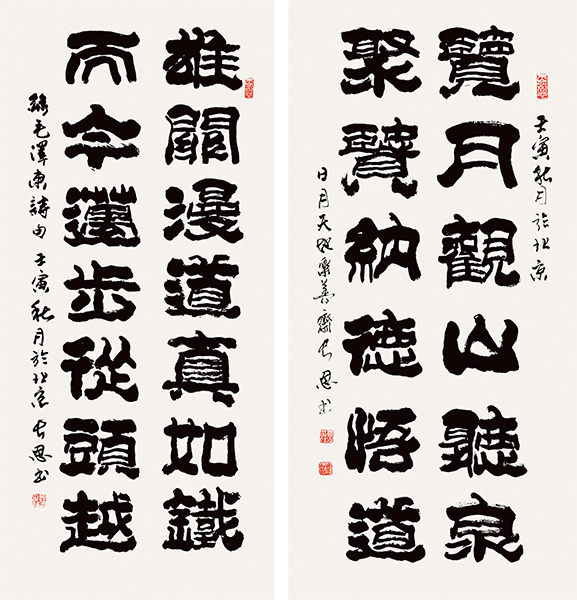 壬寅秋月於北京
覽月觀山聽泉
聚賢納德悟道
日月天地樂善齋 恩書
雄關漫道真如鐵
而今邁步從頭越
錄毛澤東詩句 壬寅秋月於北京 恩書